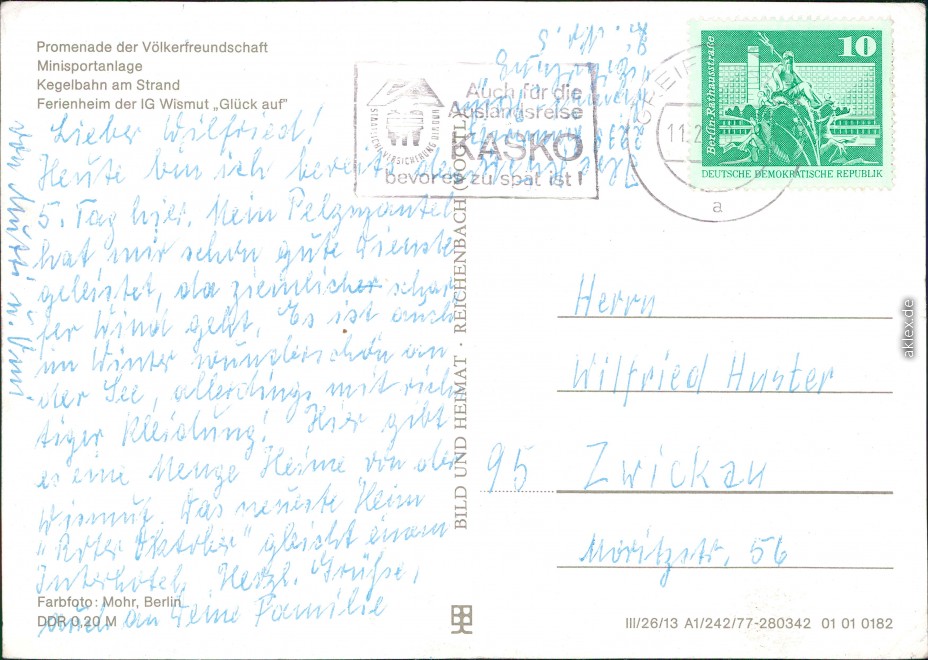 Promenade der Völkerfreundschaft
Minisportanlage
Kegelbahn am Strand
Ferienheim der IG Wismut „Glück auf"
Lieber Wilfried!
Heute bin ich bereits den
5. Tag hier. Mein Pelzmantel
hat mir schon gute Dienste
geleistet, da ziemlicher schar
fer Wind geht. Es ist auch
im Winter wunderschön an
der See, allerdings mit rich
tiger Kleidung! Hier gibt
es eine Menge Heime von der
Wismut. Das neueste Heim
"Roter Oktober" gleicht einem
Interhotel. Herzl. Grüße,
auch an Deine Familie
von Mutti u.
Farbfoto: Mohr, Berlin
DDR 0,20 M
BILD UND HEIMAT · REICHENBACH (VOGTL
STAATLICHE VERSICHERUNG DER DDR
Auch für die
Auslandsreise
KASKO
bevor es zu spät ist!
GREIF
11.2
a
Berlin, Rathausstraße
10
DEUTSCHE DEMOKRATISCHE REPUBLIK
Herrn
Wilfried Huster
95 Zwickau
Moritzstr. 56
III/26/13 A1/242/77-280342 01 01 0182
aklex.de